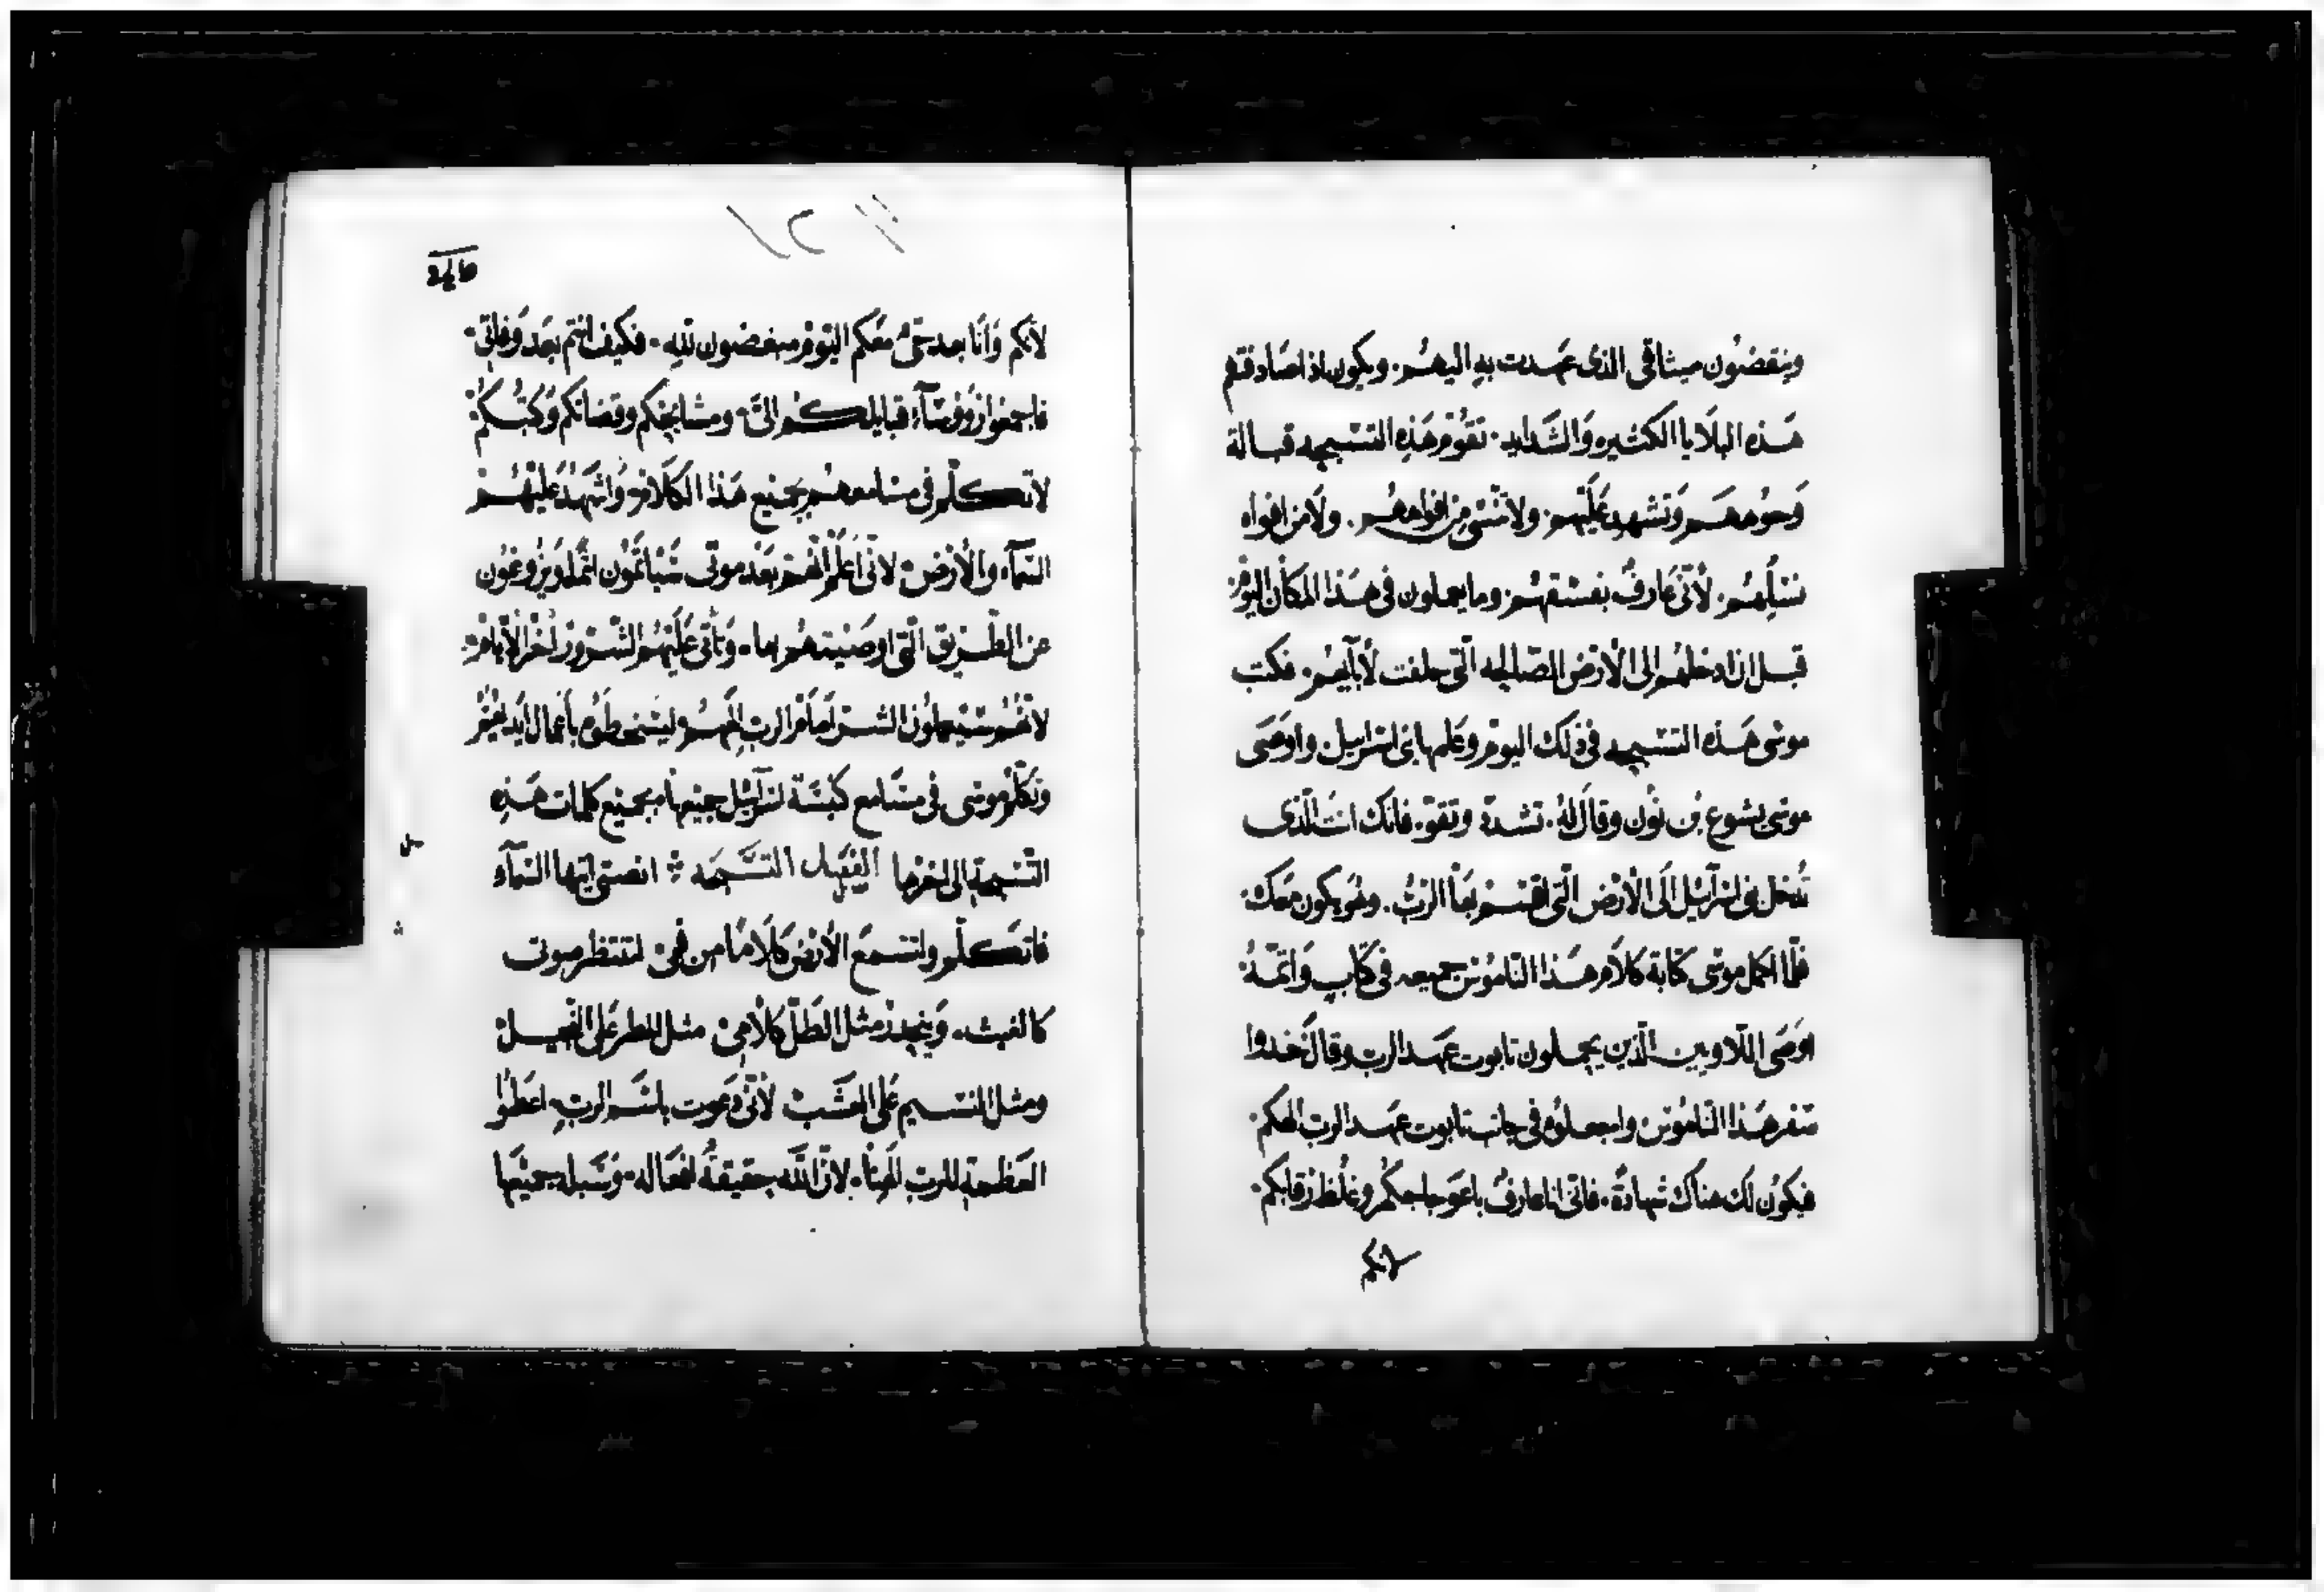 وينقضون ميثاقي الذى عهدت به اليهم. ويكون اذا صادفتهم
هذه البلايا الكثيره والشدايد. تقوم هذه التسبحه قبالة
وجوههم وتشهد عليهم. ولا تنسى من افواههم. ولا من افواه
نسلهم. لأنى عارف بفسقهم وما يعملون فى هذا المكان اليوم
قبل ان ادخلهم الى الأرض الصالحه التى حلفت لأبآيهم. فكتب
موسى هذه التسبحه فى ذلك اليوم وعلمها بنى اسراييل واوصى
موسى يشوع بن نون وقال له. تشدد وتقو. فانك انت الذى
تدخل بنى اسرآييل الى الأرض التى اقسم بها الرب. وهو يكون معك.
فلما اكمل موسى كتابة كلام هذا الناموس جميعه فى كتاب واتمه
اوصى اللاويين الذين يحملون تابوت عهد الرب وقال خدوا
سفر هذا الناموس واجعلوه فى جانب تابوت عهد الرب الهكم.
فيكون لك هناك شهادة. فانى انا عارف باعوجاجكم وغلظ رقابكم.
لانكم
لانكم وانا بعد حى معكم اليوم مبغضون لله. فكيف انتم بعد وفاتى.
فاجمعوا روسآء قبايلكم الىّ. ومشايخكم وقضاتكم وكتبكم
لاتكلم فى مسامعهم بجميع هذا الكلام واشهد عليهم
السمآء والأرض. لانى اعلم انهم بعد موتى سياثمون اثما ويزوغون
عن الطريق التى اوصيتهم بها. وتأتى عليهم الشرور اخر الأيام.
لانهم سيعملون الشر امام الرب الههم وليسخطوه بأعمال ايديهم
وتكلم موسى فى مسامع كنيسة اسرآييل جميعها بجميع كلمات هذه
التسبحة الى اخرها التسبحه ⁘ انصتى ايتها السمآء
فاتكلم ولتسمع الأرض كلاما من فمى لتنتظر صوتى
كالغيث. وينحدر مثل الطلّ كلامى مثل المطر على النجيل
ومثل النسيم على العشب لأنى دعوت باسم الرب. اعطوا
العظمة للرب الهنا. لان الله حقيقة افعاله. وسبله جميعها